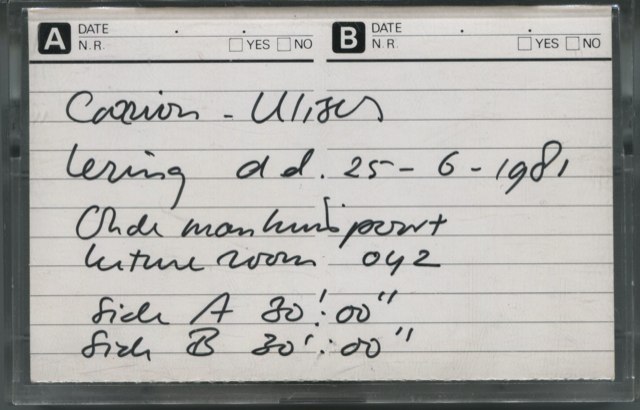 A DATE . . B DATE . .
N.R. YES NO N.R. YES NO
Carrion - Ulises
lezing d d. 25 - 6 - 1981
Oude manhuispoort
lecture room 042
Side A 30' : 00"
Side B 30' : 00"